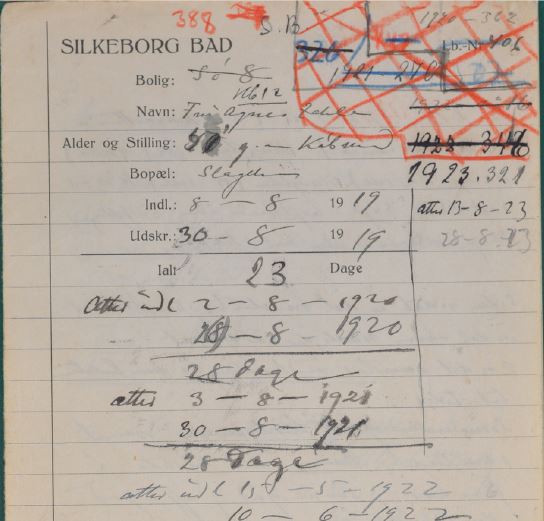 388 S.B 1920-362
SILKEBORG BAD Lb.-Nr 406
320
Bolig: Sø 8 1921 240
Navn: Fru Agnes
Alder og Stilling: 50 g. m Købmd 1922 346
Bopæl: Slagelse 1923.321
Indl.: 8 - 8 1919 atter 13-8-23
Udskr.: 30 - 8 1919 28-8-23
Ialt 23 Dage
atter indl 2 - 8 - 1920
28 - 8 - 1920
28 Dage
atter 3 - 8 - 1921
30 - 8 - 1921
28 Dage
atter indl 15 - 5 - 1922
10 - 6 - 1922